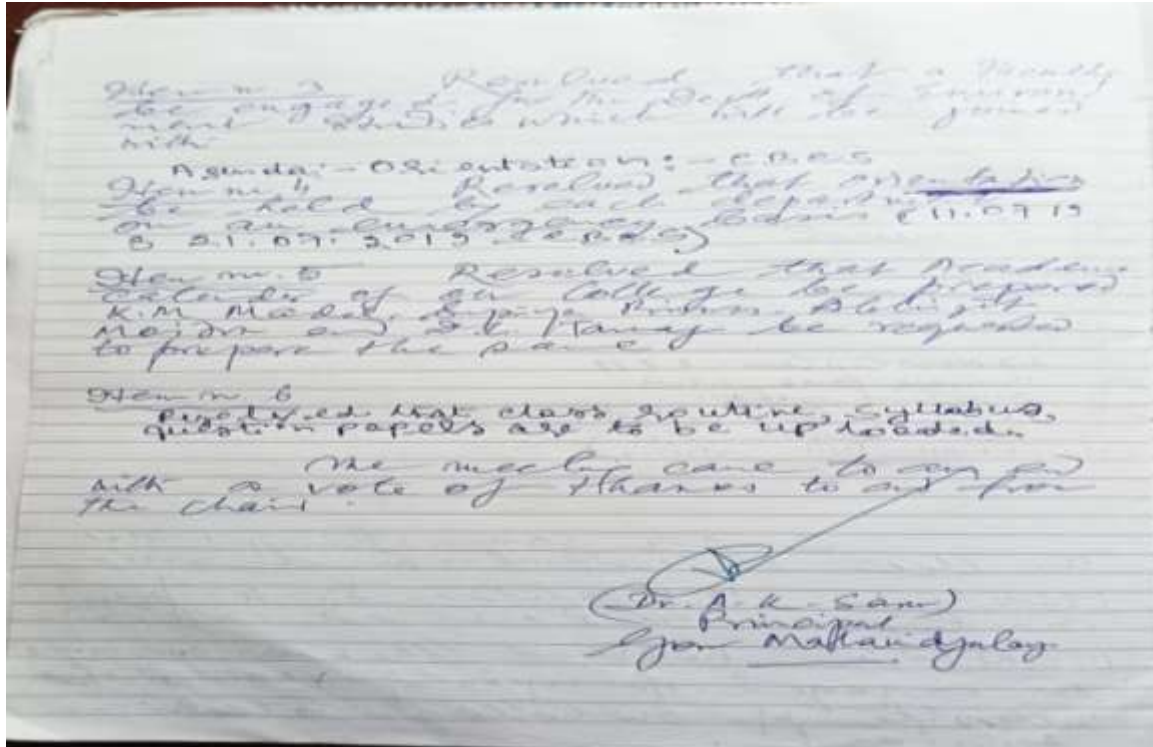 Item no 3 Resolved that a Faculty
be engaged for the Dept of Environ
ment Studies which will be joined
with
Agenda:- Orientation:- CBCS
Item no 4 Resolved that orientation
be held by each department
on an basis 11.07.19
& 21.07.2019 (CBCS)
Item no. 5 Resolved that Academic
Calender of our College be prepared
K.M. Mondal, Abhijit
and be requested
to prepare the same
Item no 6
Resolved that class routine, syllabus,
question papers are to be uploaded.
The meeting came to an end
with a vote of thanks to all from
the chair.
(Dr. A. K. )
Principal
Mahavidyalay